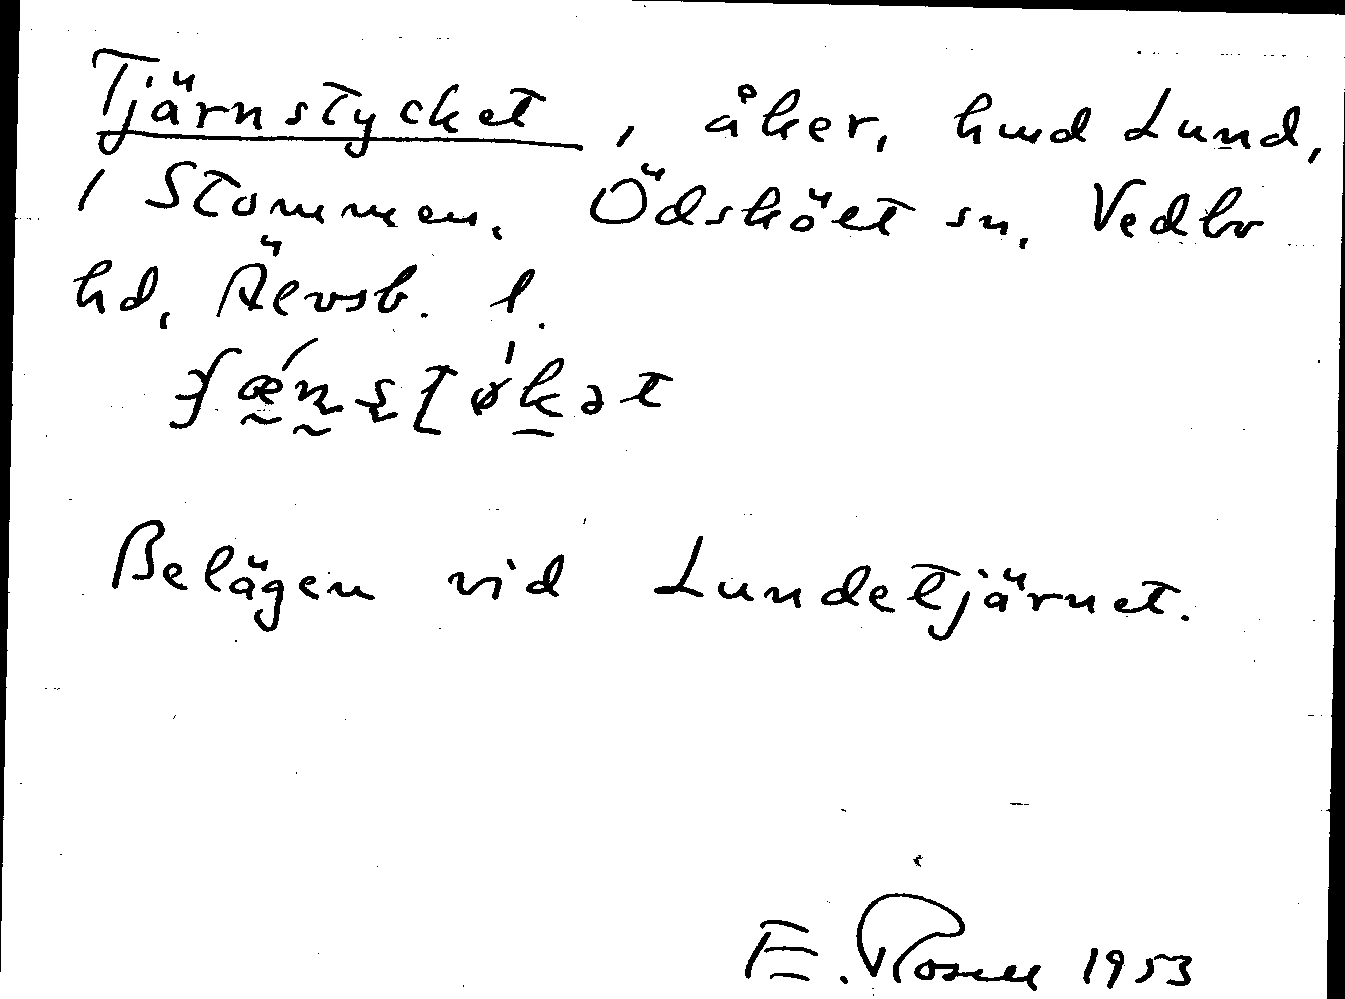 Tjärnstycket, åker, hmd Lund,
1 Stommen, Ödsköлt sn, Vedbo
hd, Älvsb. l.
Belägen vid Lundetjärnet.
E. Rosell 1953